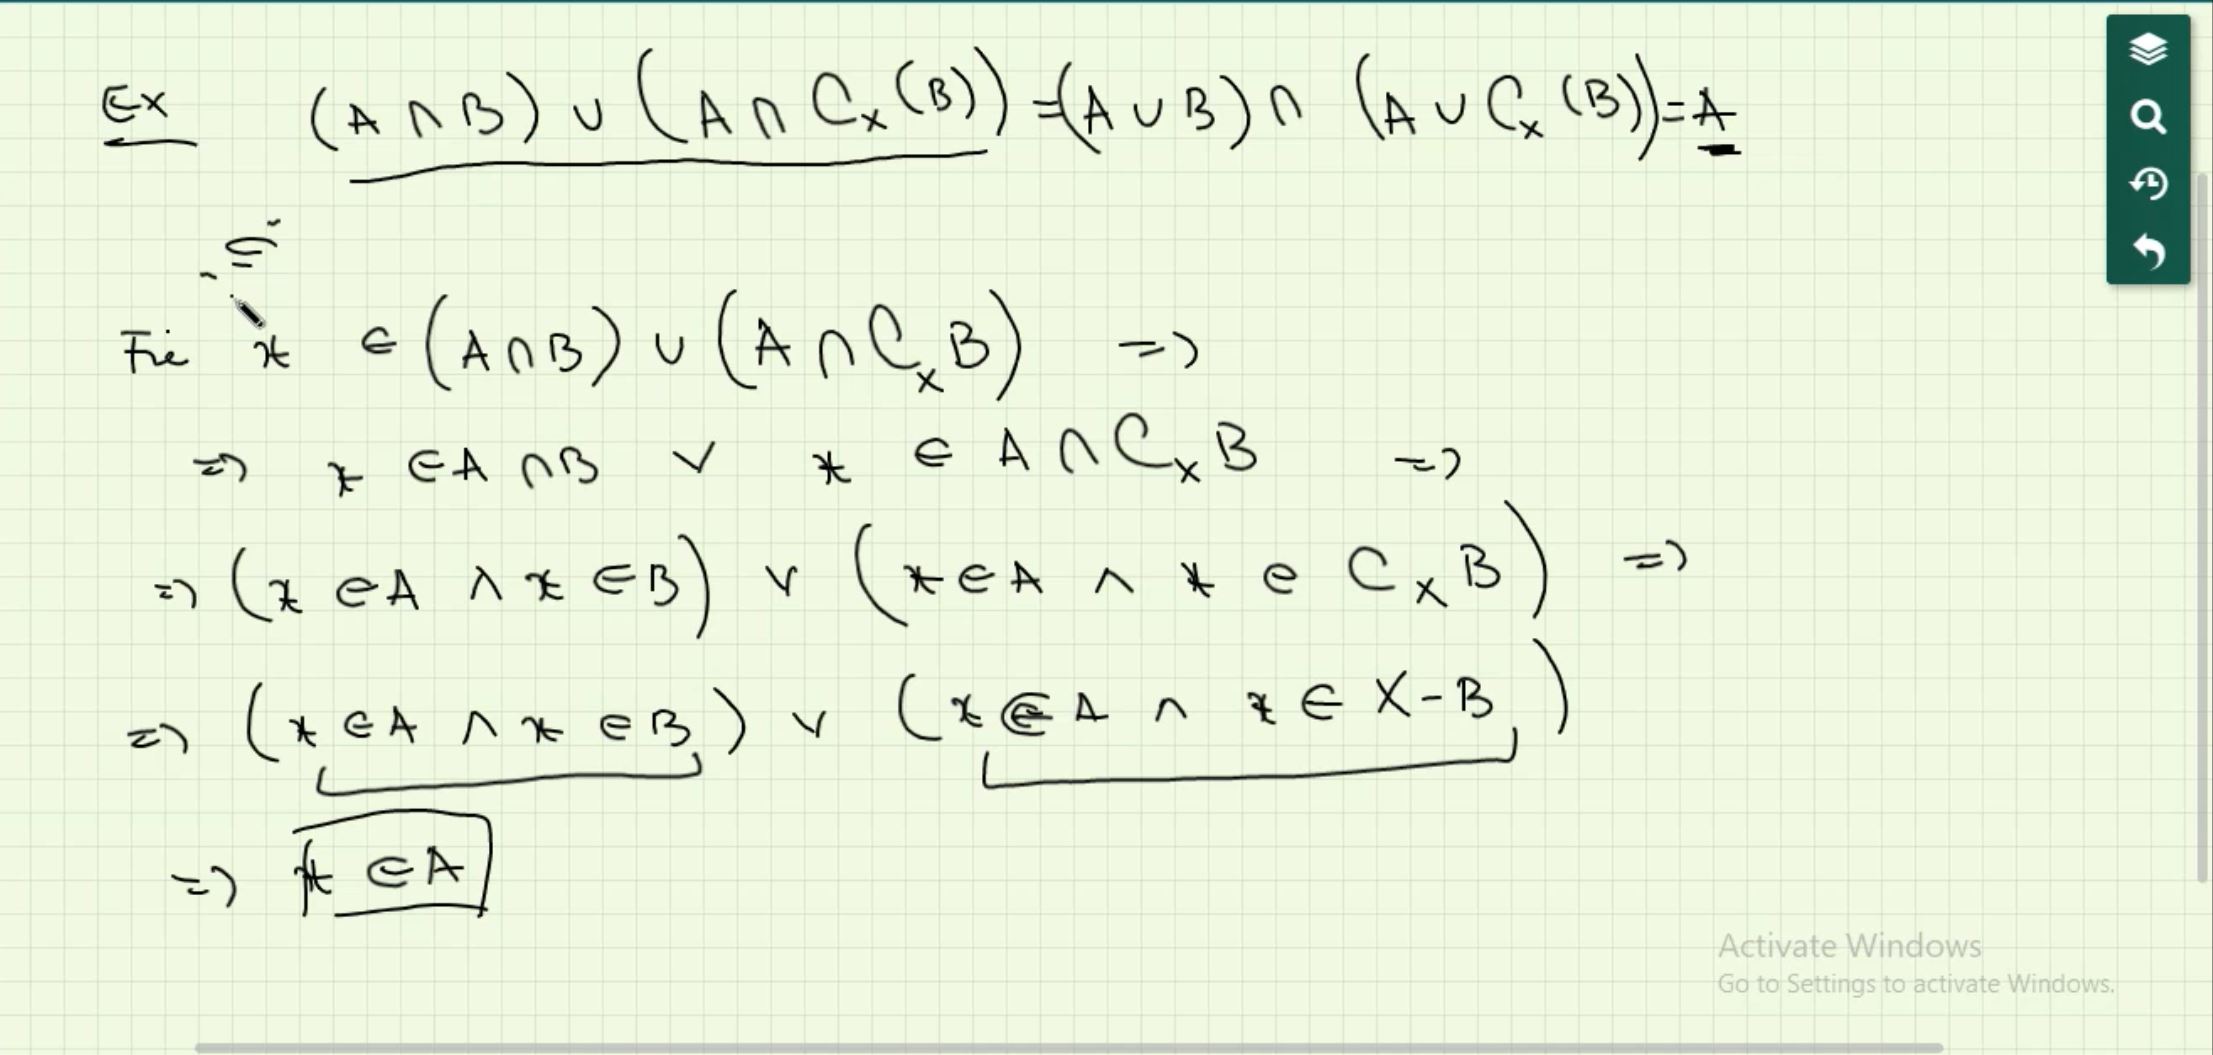 Ex (A ∩ B) ∪ (A ∩ Cₓ(B)) = (A ∪ B) ∩ (A ∪ Cₓ(B)) = A
"⊆"
Fie x ∈ (A ∩ B) ∪ (A ∩ CₓB) =>
=> x ∈ A ∩ B ∨ x ∈ A ∩ CₓB =>
=> (x ∈ A ∧ x ∈ B) ∨ (x ∈ A ∧ x ∈ CₓB) =>
=> (x ∈ A ∧ x ∈ B) ∨ (x ∈ A ∧ x ∈ X - B)
=> x ∈ A
Activate Windows
Go to Settings to activate Windows.